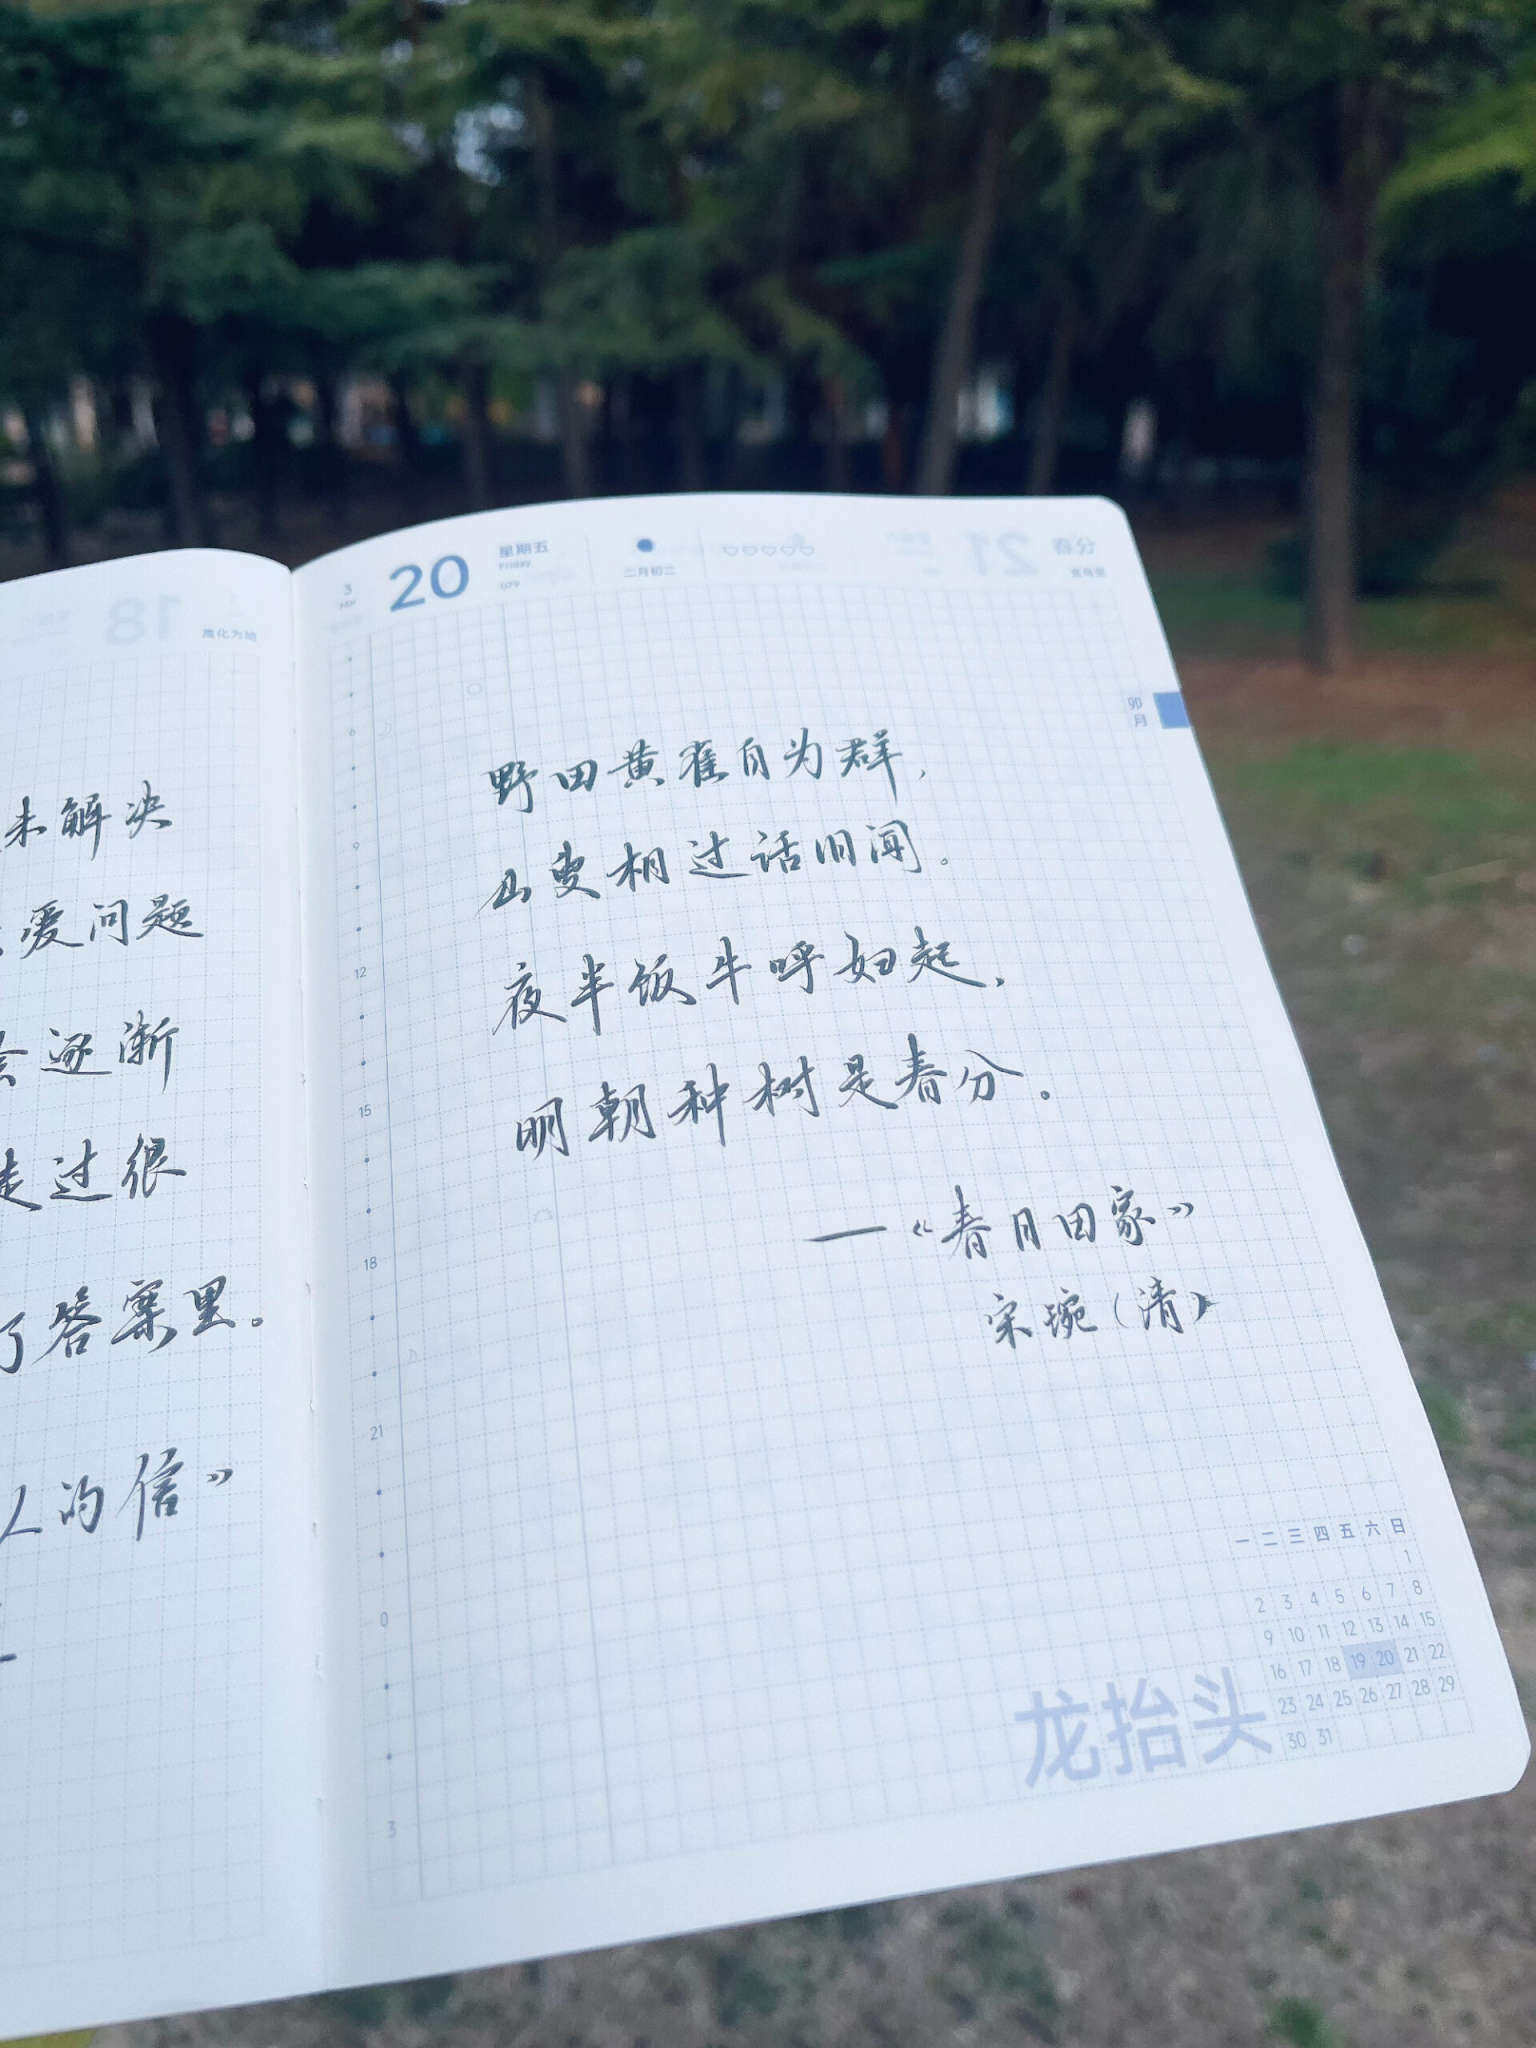 未解决
爱问题
会逐渐
走过很
了答案里。
人的信》
3
20
星期五
Friday
079
二月初二
卯月
6
9
12
15
18
21
0
3
野田黄雀自为群,
山叟相过话旧闻。
夜半饭牛呼妇起,
明朝种树是春分。
—《春月田家》
宋琬(清)
一 二 三 四 五 六 日
1
2 3 4 5 6 7 8
9 10 11 12 13 14 15
16 17 18 19 20 21 22
23 24 25 26 27 28 29
30 31
龙抬头